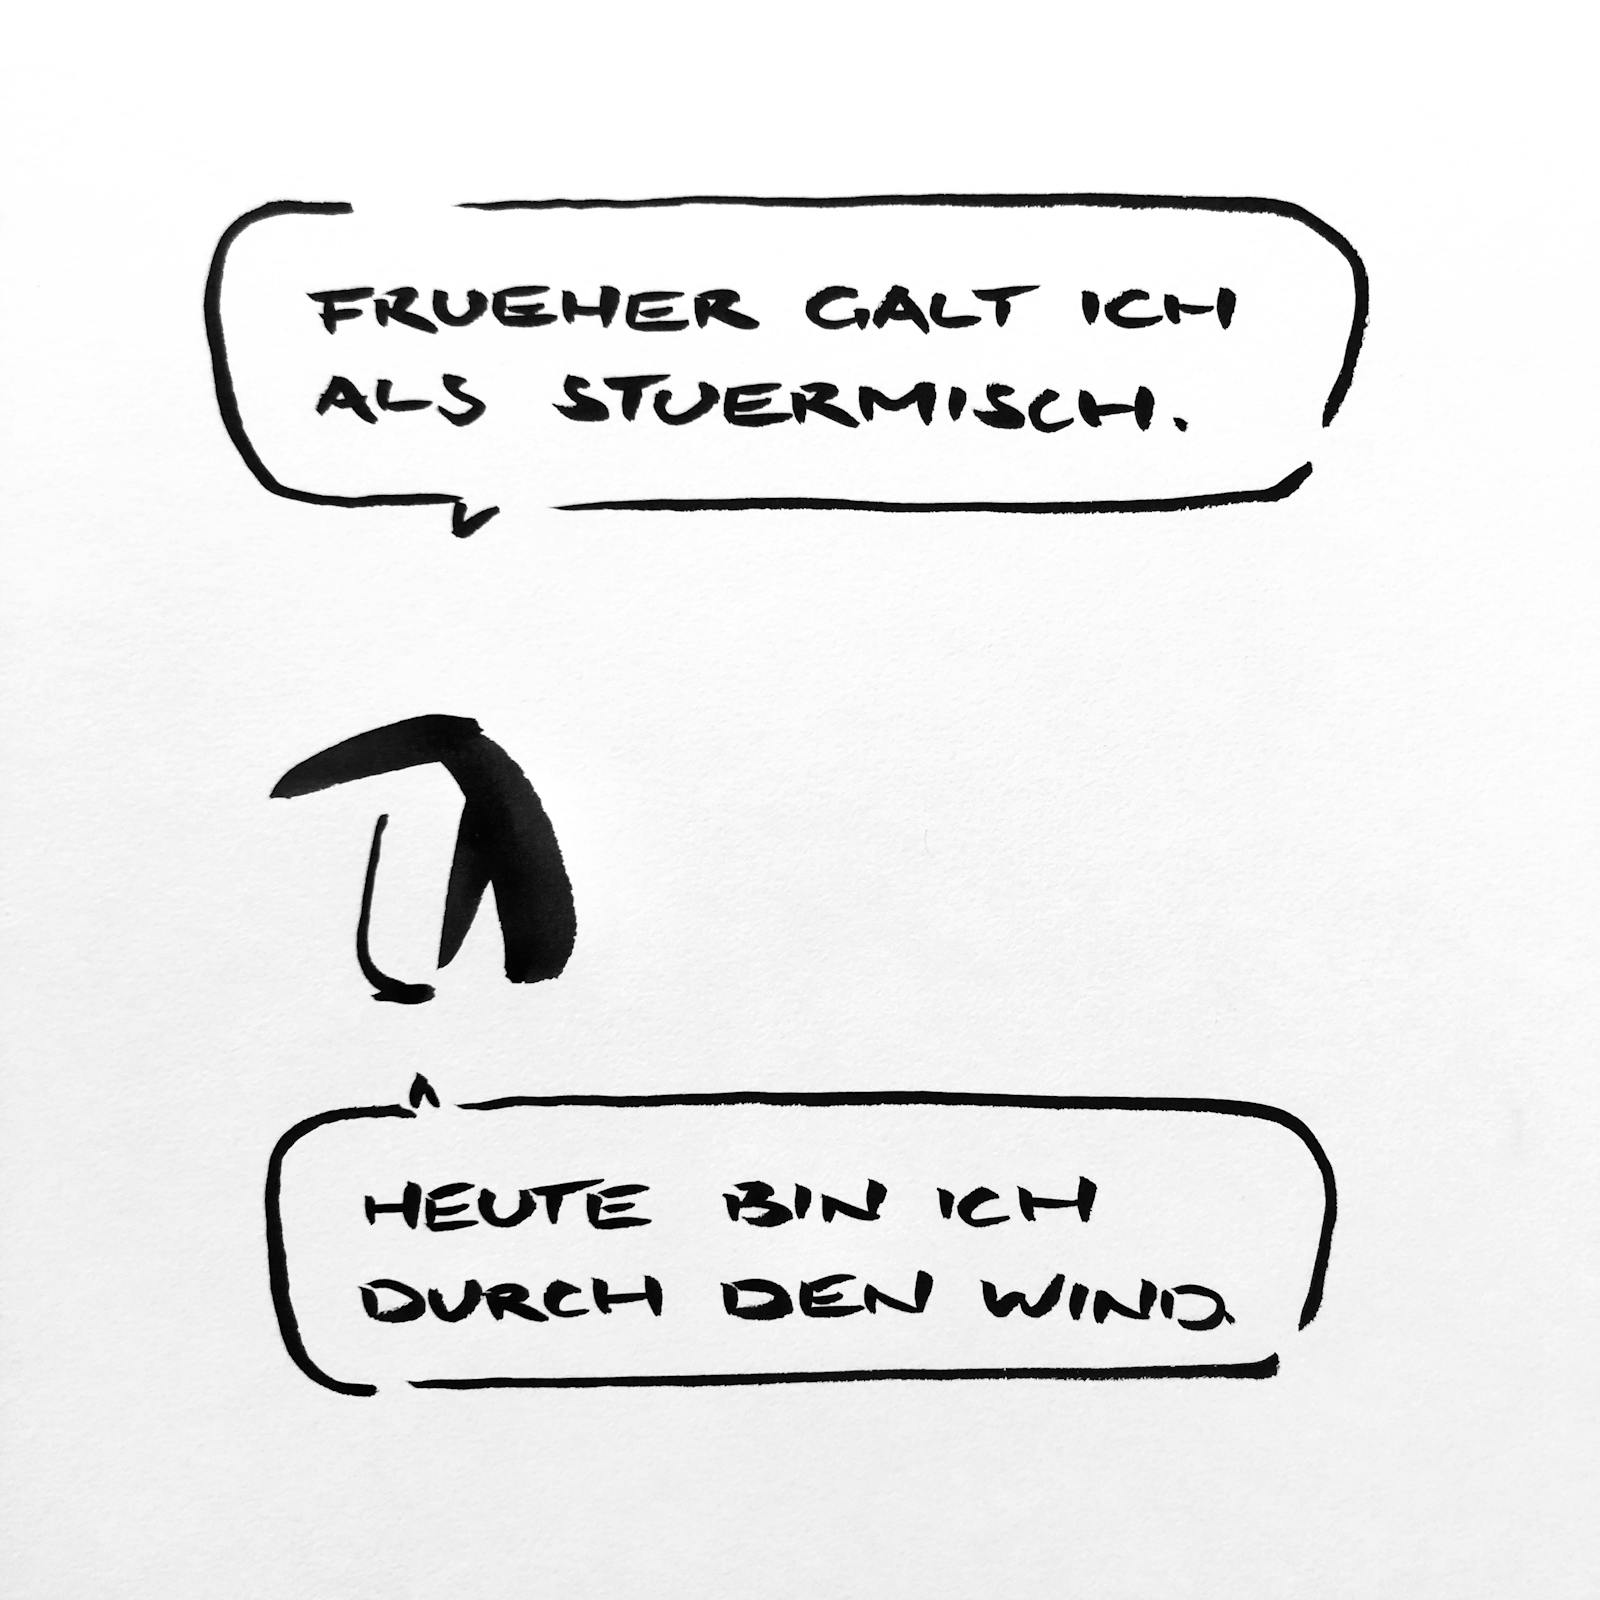 FRUEHER GALT ICH
ALS STUERMISCH.
HEUTE BIN ICH
DURCH DEN WIND.